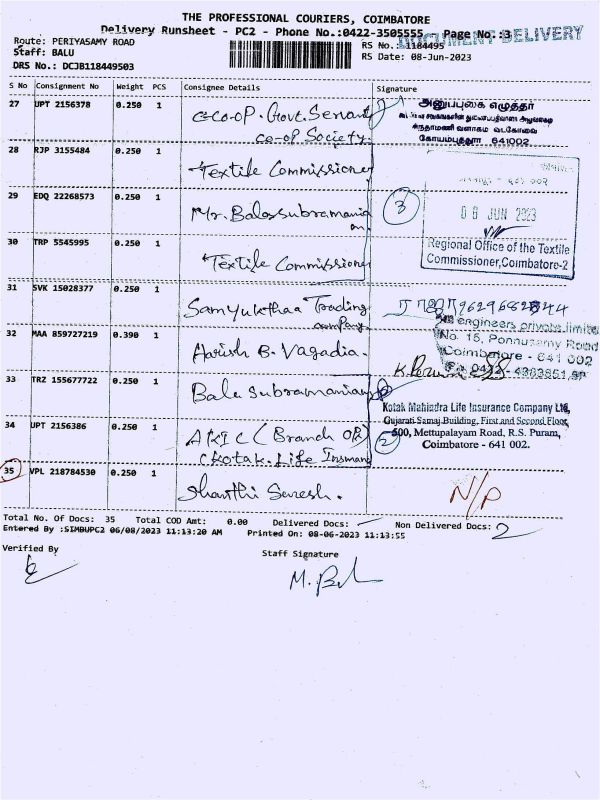 THE PROFESSIONAL COURIERS, COIMBATORE
Delivery Runsheet - PC2 - Phone No.:0422-3505555 Page No.:3
DOCUMENT DELIVERY
Route: PERIYASAMY ROAD
RS No.: 1184495
Staff: BALU
RS Date: 08-Jun-2023
DRS No.: DCJB118449503
S No Consignment No Weight PCS Consignee Details Signature
27 UPT 2156378 0.250 1 G-Co-op. Govt. Servant
co-op Society.
அனுப்புகை எழுத்தர்
641002
28 RJP 3155484 0.250 1 Textile Commissioner
29 EDQ 22268573 0.250 1 Mr. Balasubramania
3
JUN 2023
30 TRP 5545995 0.250 1 Textile Commissioner
Regional Office of the Textile
Commissioner,Coimbatore-2
31 SVK 15028377 0.250 1 Samyukthaa Trading
company
engineers private limited
No. 15, Ponnusamy Road
Coimbatore - 641 002
32 MAA 859727219 0.390 1 Harish B. Vagadia.
33 TRZ 155677722 0.250 1 Bala Subramaniam
Kotak Mahindra Life Insurance Company Ltd,
Gujarati Samaj Building, First and Second Floor,
500, Mettupalayam Road, R.S. Puram,
Coimbatore - 641 002.
34 UPT 2156386 0.250 1 AKIC (Branch OR)
Kotak Life
2
35 VPL 218784530 0.250 1 Shanthi Suresh.
N/P
Total No. Of Docs: 35 Total COD Amt: 0.00 Delivered Docs: Non Delivered Docs: 2
Entered By :SIMBUPC2 06/08/2023 11:13:20 AM Printed On: 08-06-2023 11:13:55
Verified By
Staff Signature